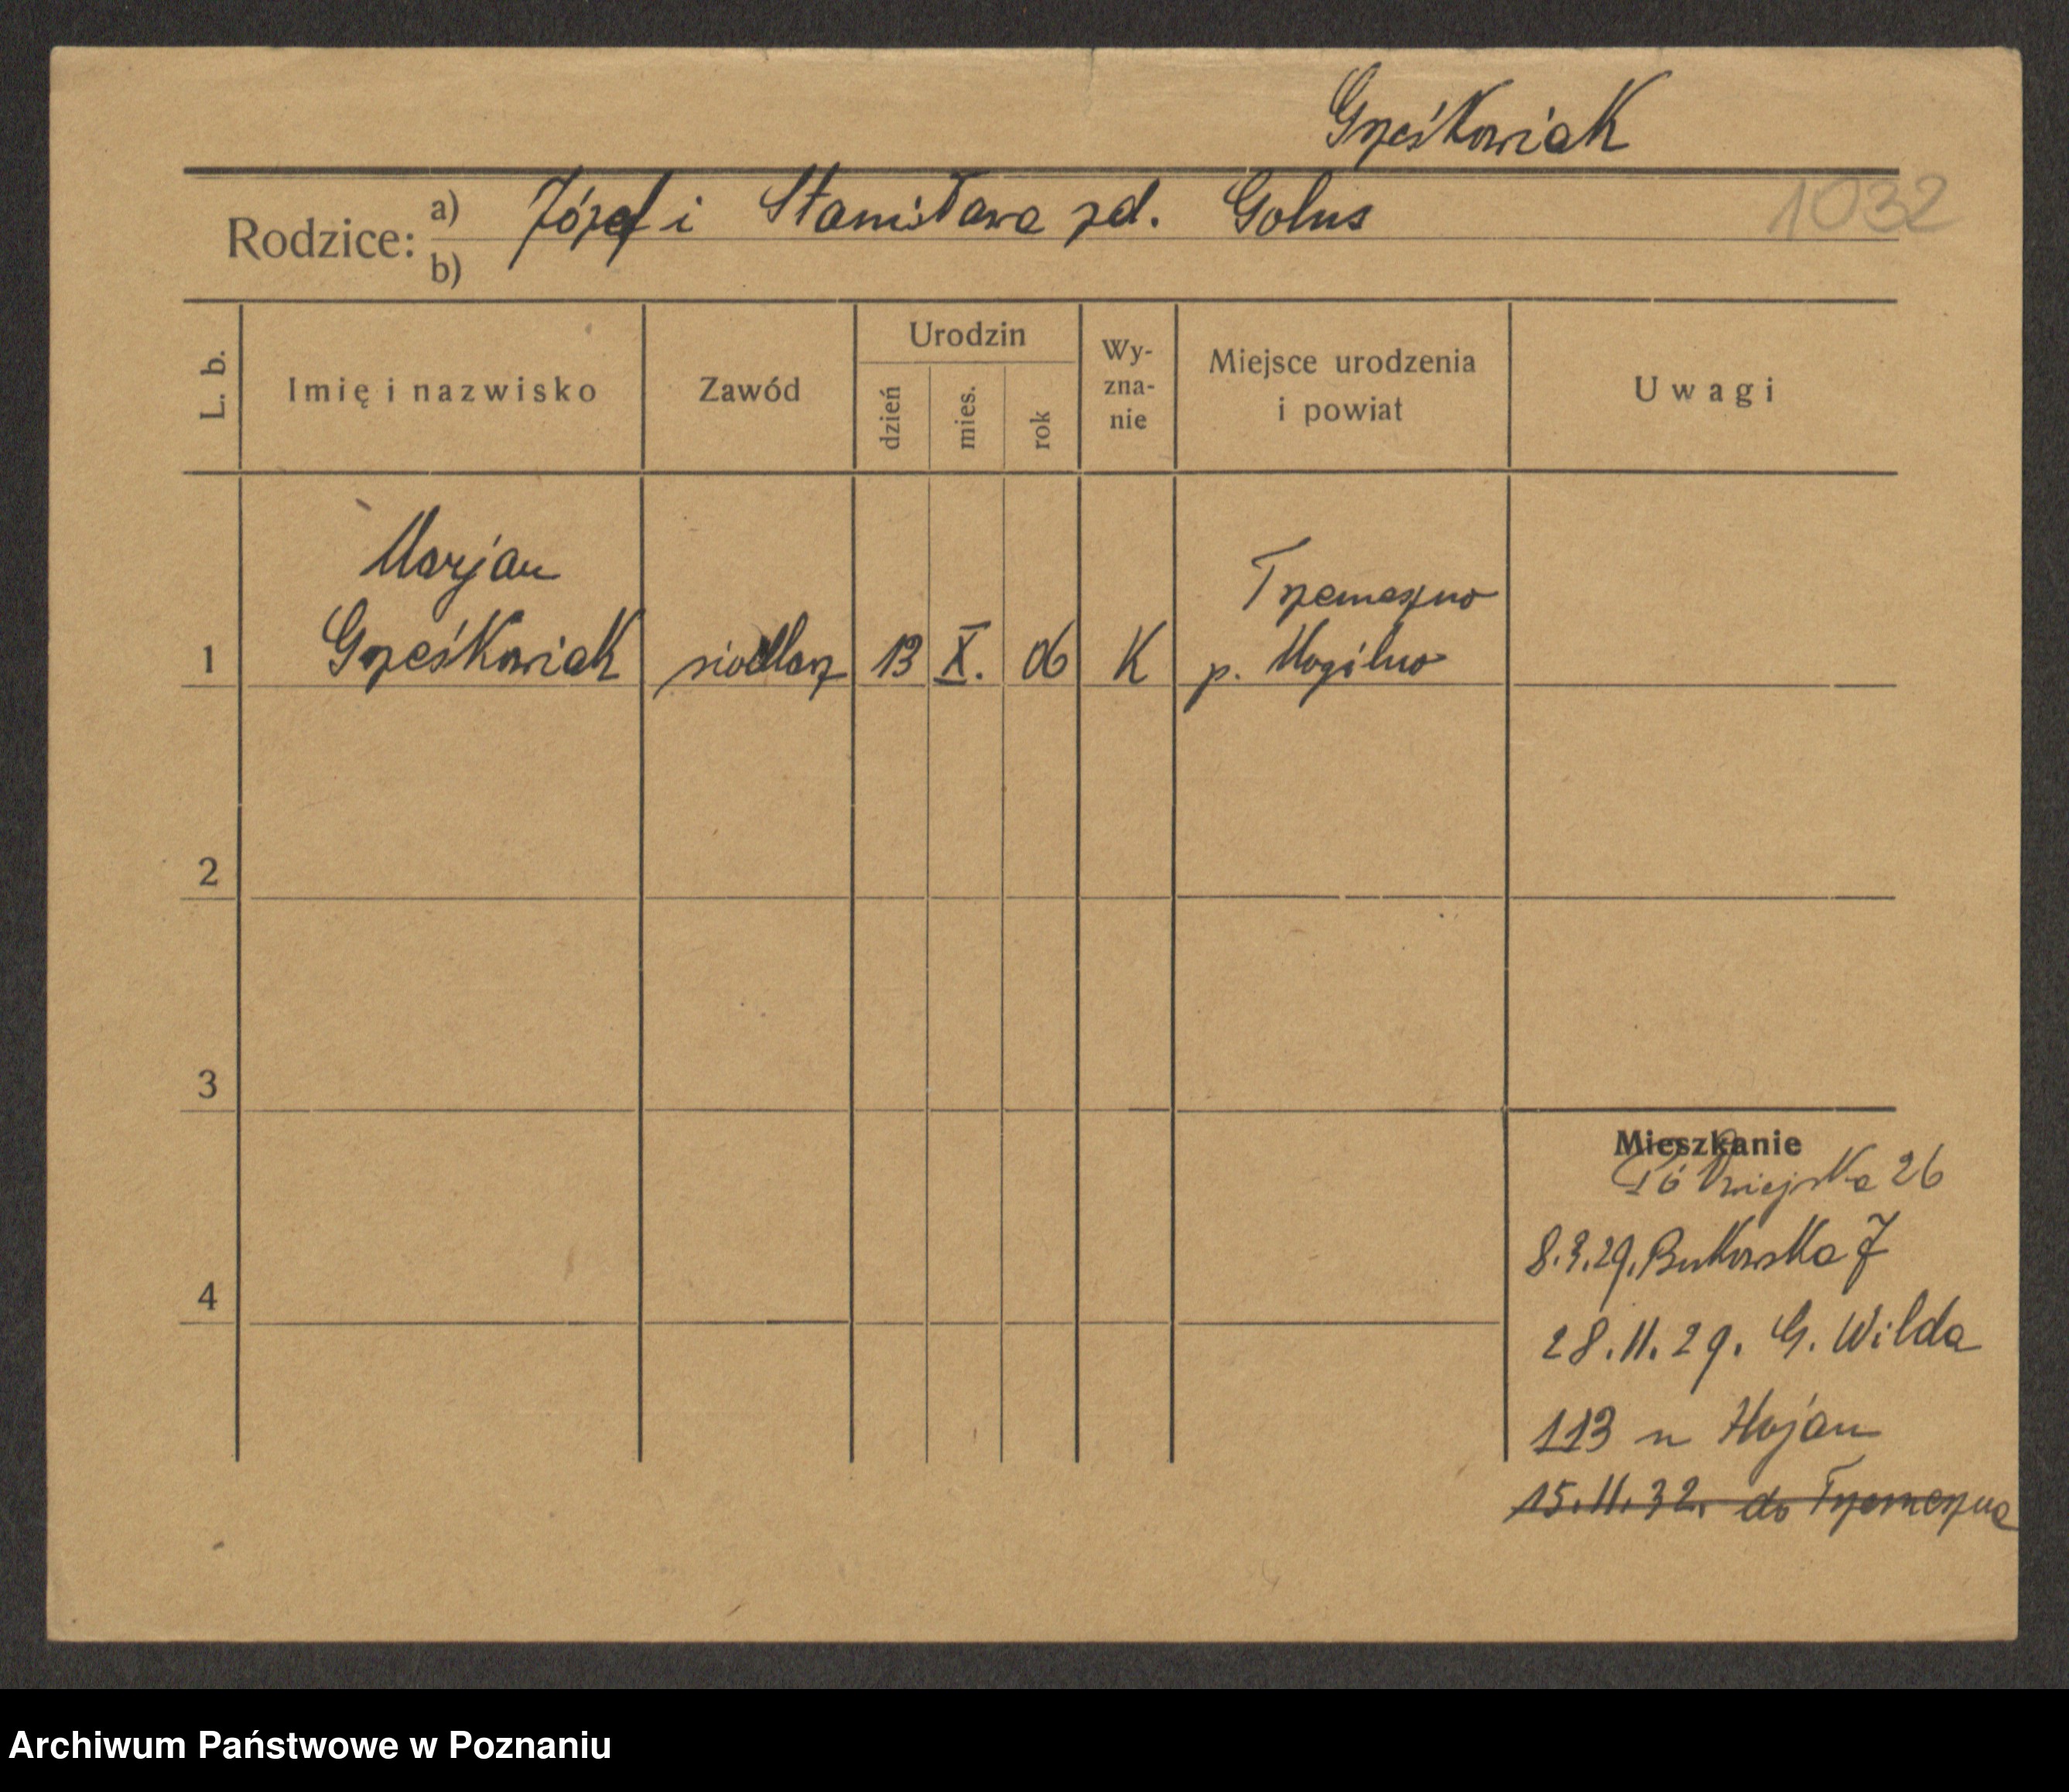 Grześkowiak
1032
Rodzice: a) Józef i Stanisława zd. Golus
b)
L. b.
Imię i nazwisko
Zawód
Urodzin
dzień
mies.
rok
Wy-
zna-
nie
Miejsce urodzenia
i powiat
Uwagi
Marjan
Trzemeszno
1 Grześkowiak siodlarz 13 X. 06 K p. Mogilno
2
3
4
Mieszkanie
Półwiejska 26
8.3.29. Bukowska 7
28.11.29. G. Wilda
113 u Hojan
15.11.32. do Trzemeszna
Archiwum Państwowe w Poznaniu